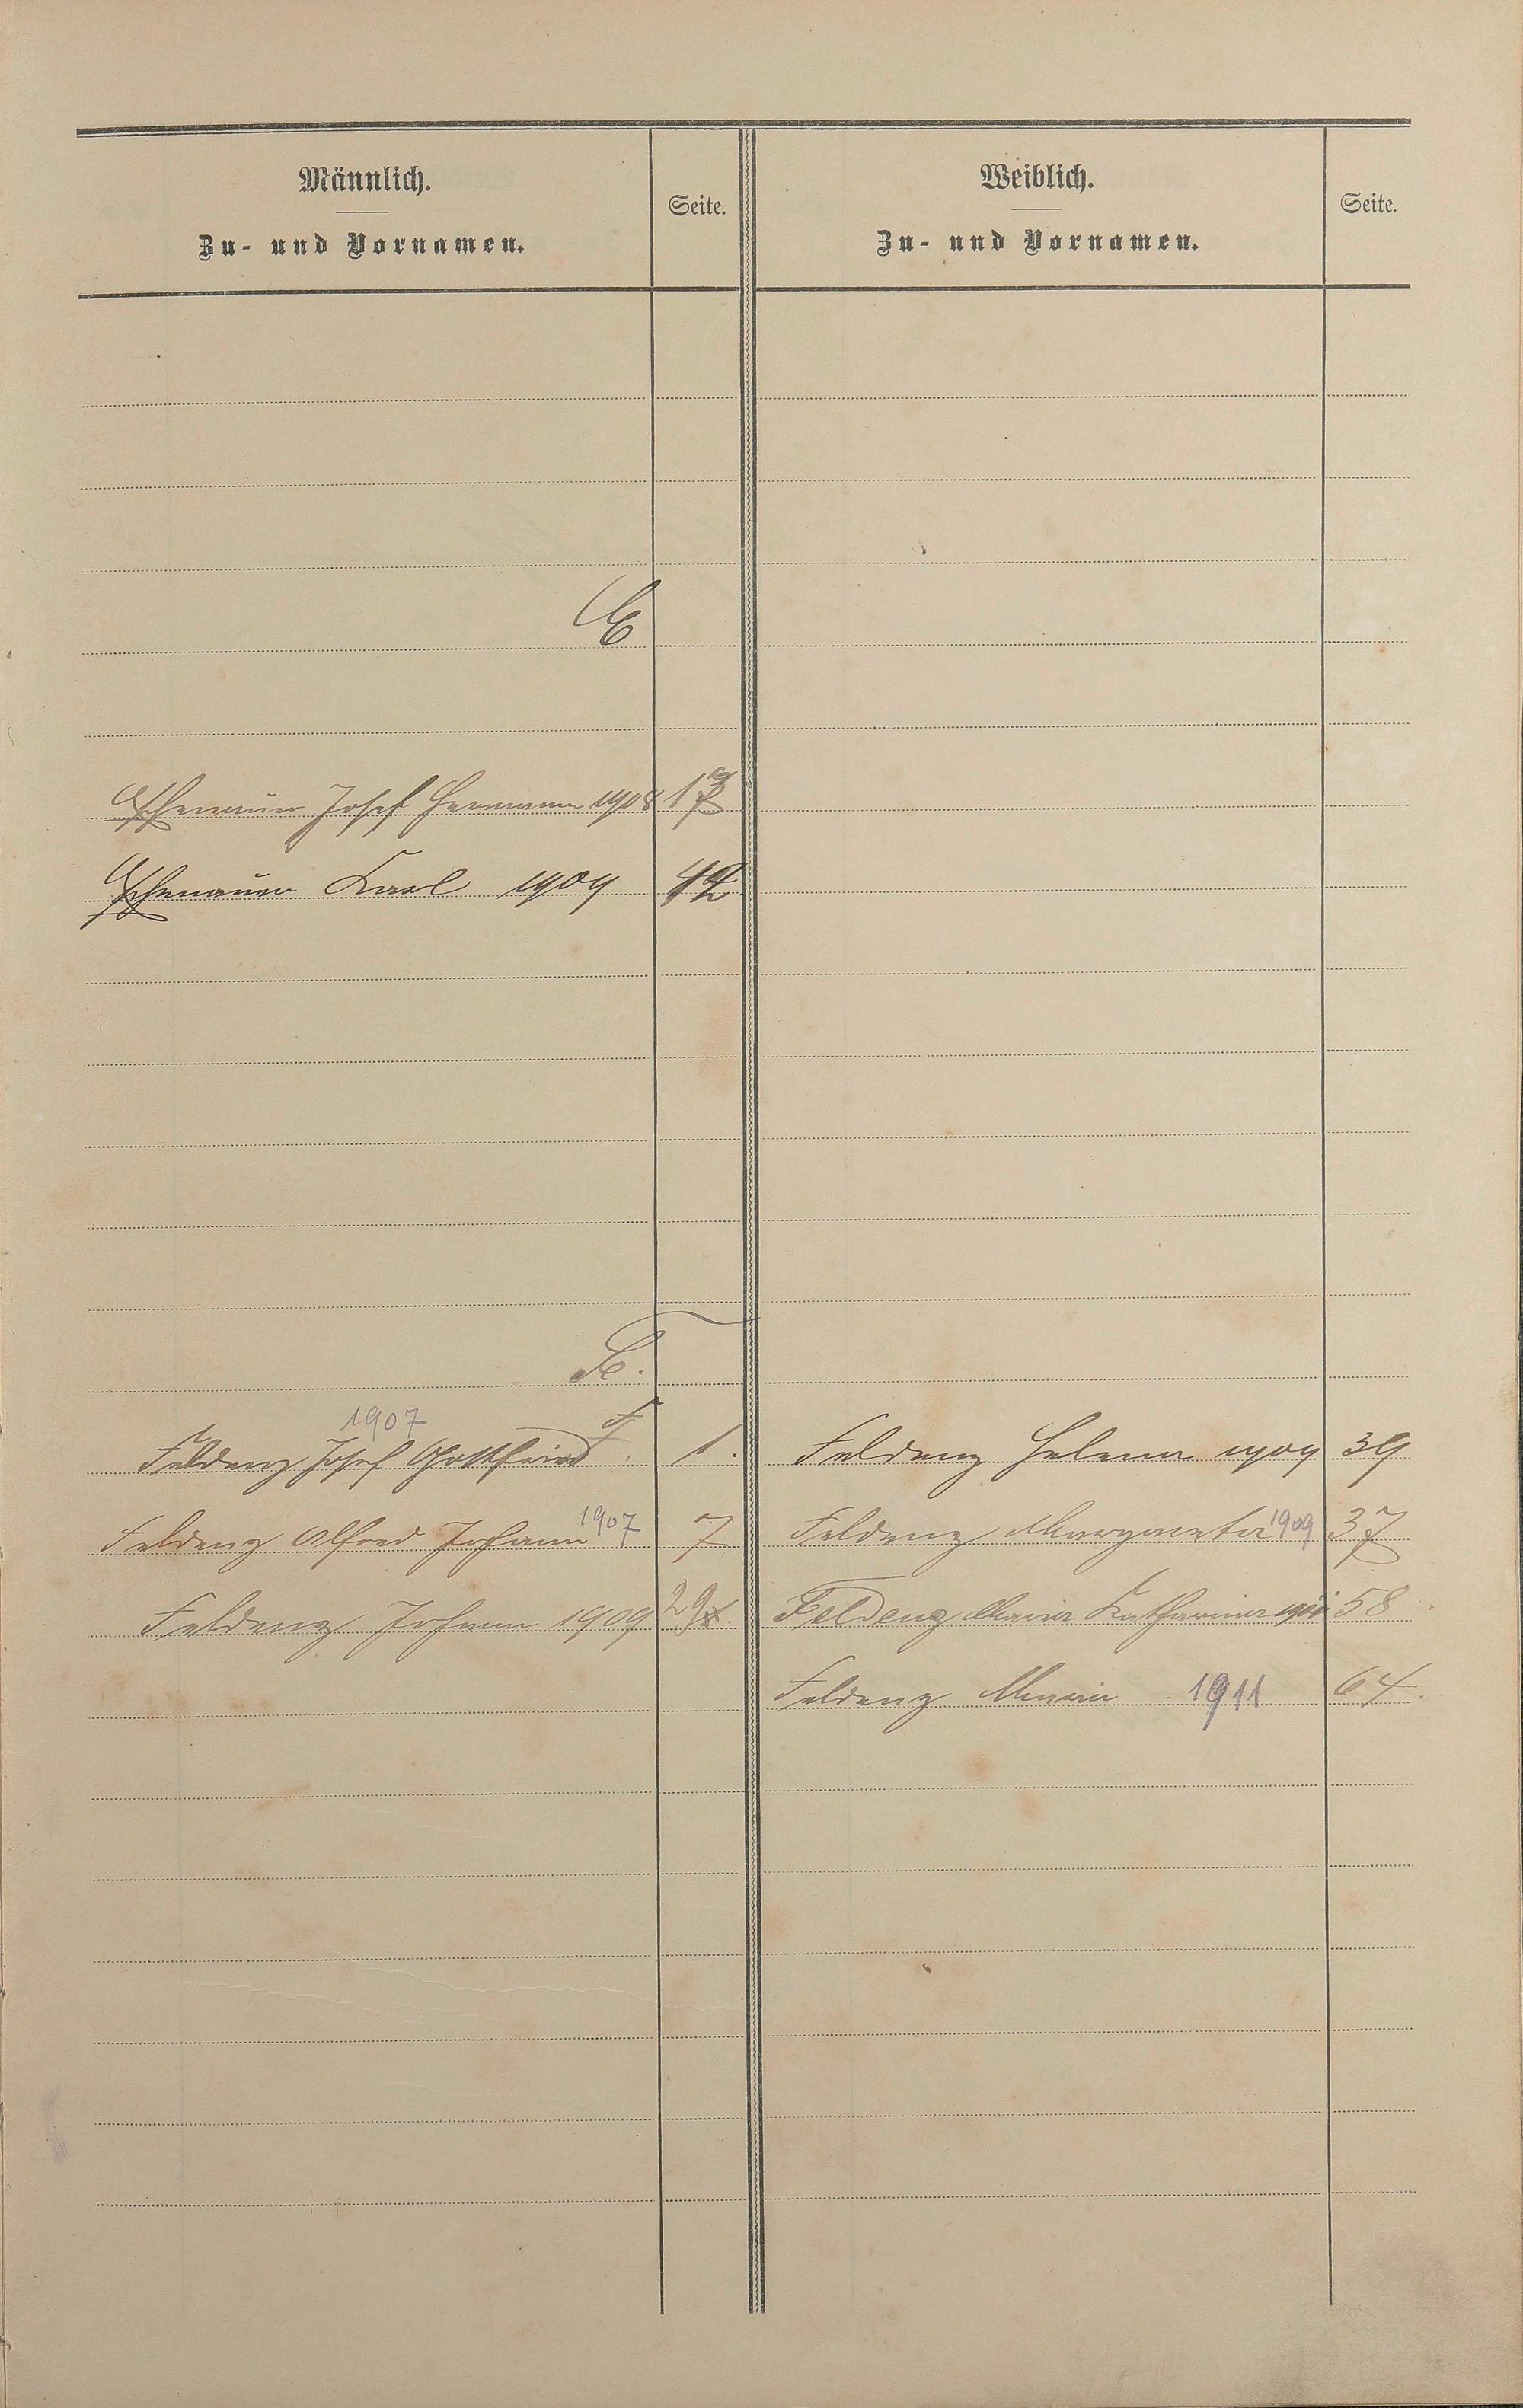 Männlich.
Zu- und Vornamen.
Seite.
Weiblich.
Zu- und Vornamen.
Seite.
E
Eschenauer Josef Hermann 1908
Eschenauer Karl 1909 42
F.
1907
Feldenz Josef Gottfried 1.
Feldenz Helena 1909 39
Feldenz Alfred Johann 1907 7
Feldenz Margareta 1909 37
Feldenz Johann 1909 29
Feldenz Maria Katharina 58
Feldenz Maria 1911 64.